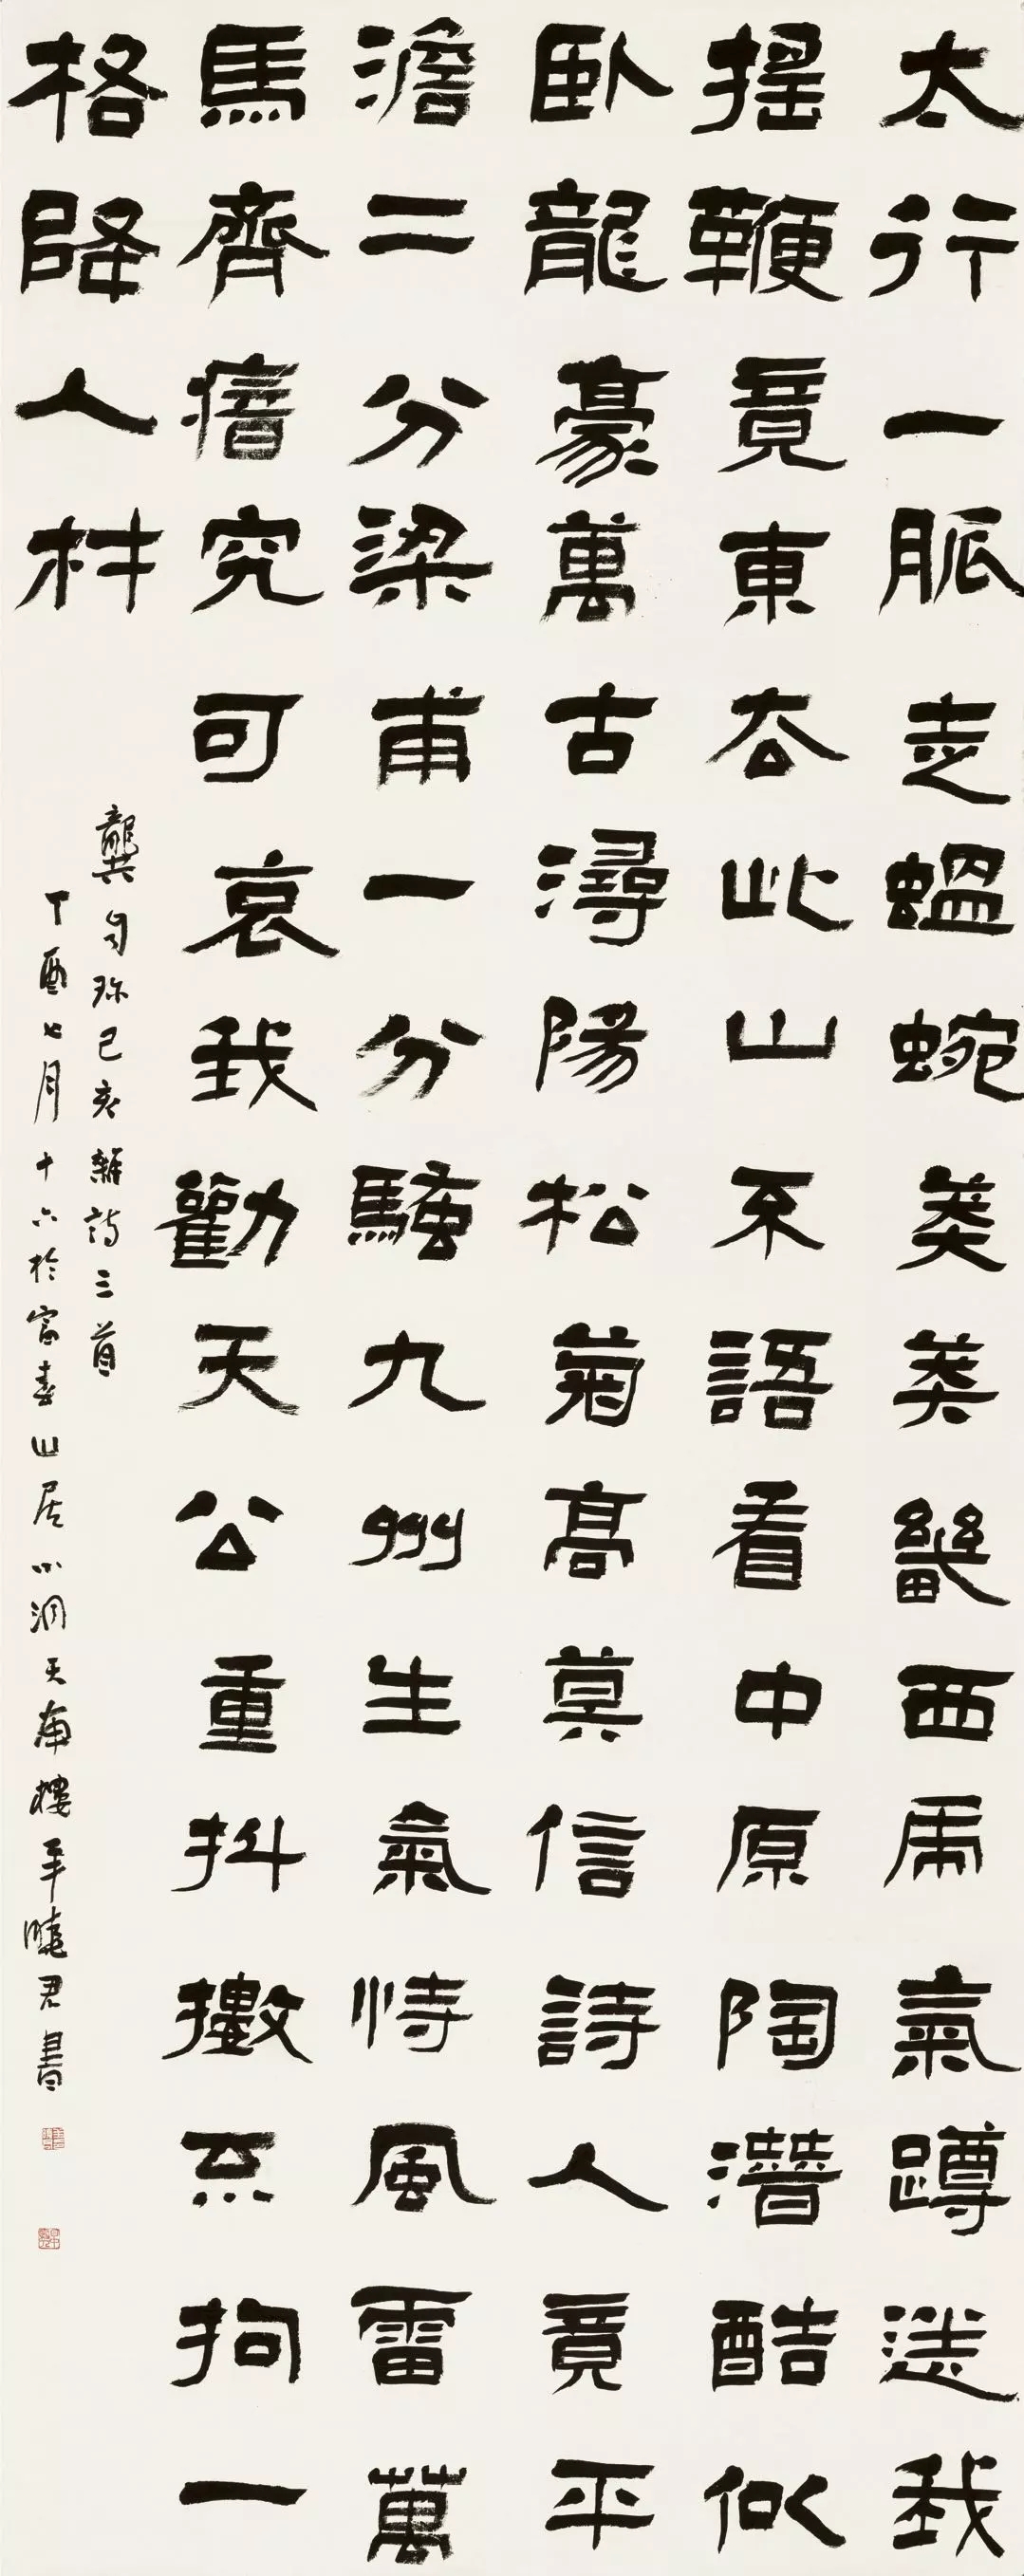 太行一脈走蝹蜿莽莽畿西虎氣蹲送我
搖鞭竟東去此山不語看中原陶潛酷似
卧龍豪萬古潯陽松菊高莫信詩人竟平
澹二分梁甫一分騷九州生氣恃風雷萬
馬齊瘖究可哀我勸天公重抖擻不拘一
格降人材
龔自珍己亥雜詩三首
丁酉七月十六於富春山居小洞天南樓平曉君書